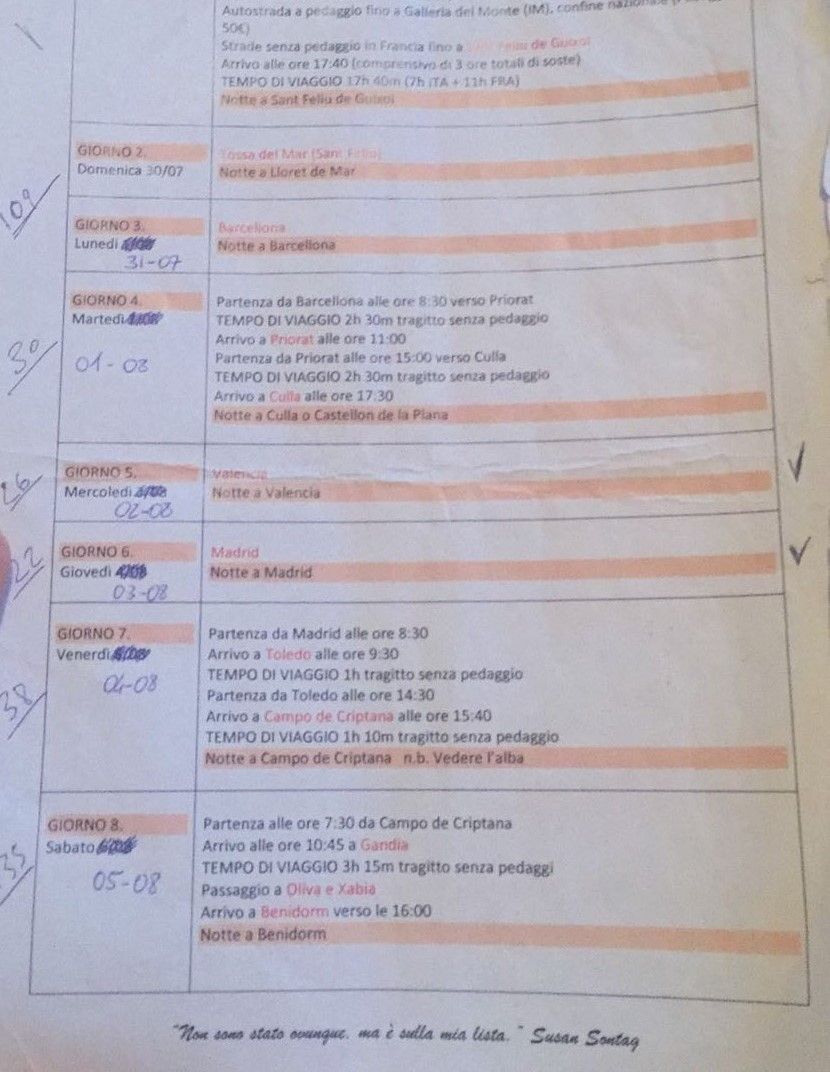 Autostrada a pedaggio fino a Galleria del Monte (IM), confine
50€)
Strade senza pedaggio in Francia fino a Sant Feliu de Guixol
Arrivo alle ore 17:40 (comprensivo di 3 ore totali di soste)
TEMPO DI VIAGGIO 17h 40m (7h ITA + 11h FRA)
Notte a Sant Feliu de Guixol
GIORNO 2.
Domenica 30/07
Tossa del Mar (Sant Feliu)
Notte a Lloret de Mar
109
GIORNO 3.
Lunedì
31-07
Barcellona
Notte a Barcellona
GIORNO 4.
Martedì
01-08
30
Partenza da Barcellona alle ore 8:30 verso Priorat
TEMPO DI VIAGGIO 2h 30m tragitto senza pedaggio
Arrivo a Priorat alle ore 11:00
Partenza da Priorat alle ore 15:00 verso Culla
TEMPO DI VIAGGIO 2h 30m tragitto senza pedaggio
Arrivo a Culla alle ore 17:30
Notte a Culla o Castellon de la Plana
GIORNO 5.
Mercoledì
02-08
26
Valencia
Notte a Valencia
GIORNO 6.
Giovedì
03-08
22
Madrid
Notte a Madrid
GIORNO 7.
Venerdì
04-08
38
Partenza da Madrid alle ore 8:30
Arrivo a Toledo alle ore 9:30
TEMPO DI VIAGGIO 1h tragitto senza pedaggio
Partenza da Toledo alle ore 14:30
Arrivo a Campo de Criptana alle ore 15:40
TEMPO DI VIAGGIO 1h 10m tragitto senza pedaggio
Notte a Campo de Criptana n.b. Vedere l'alba
GIORNO 8.
Sabato
05-08
35
Partenza alle ore 7:30 da Campo de Criptana
Arrivo alle ore 10:45 a Gandia
TEMPO DI VIAGGIO 3h 15m tragitto senza pedaggi
Passaggio a Oliva e Xabia
Arrivo a Benidorm verso le 16:00
Notte a Benidorm
"Non sono stato ovunque, ma è sulla mia lista." Susan Sontag